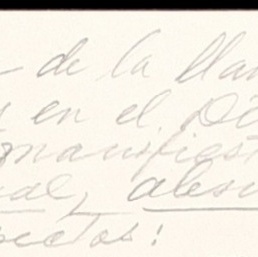 de la lla
en el De
manifiest
al, alesi
ectos: